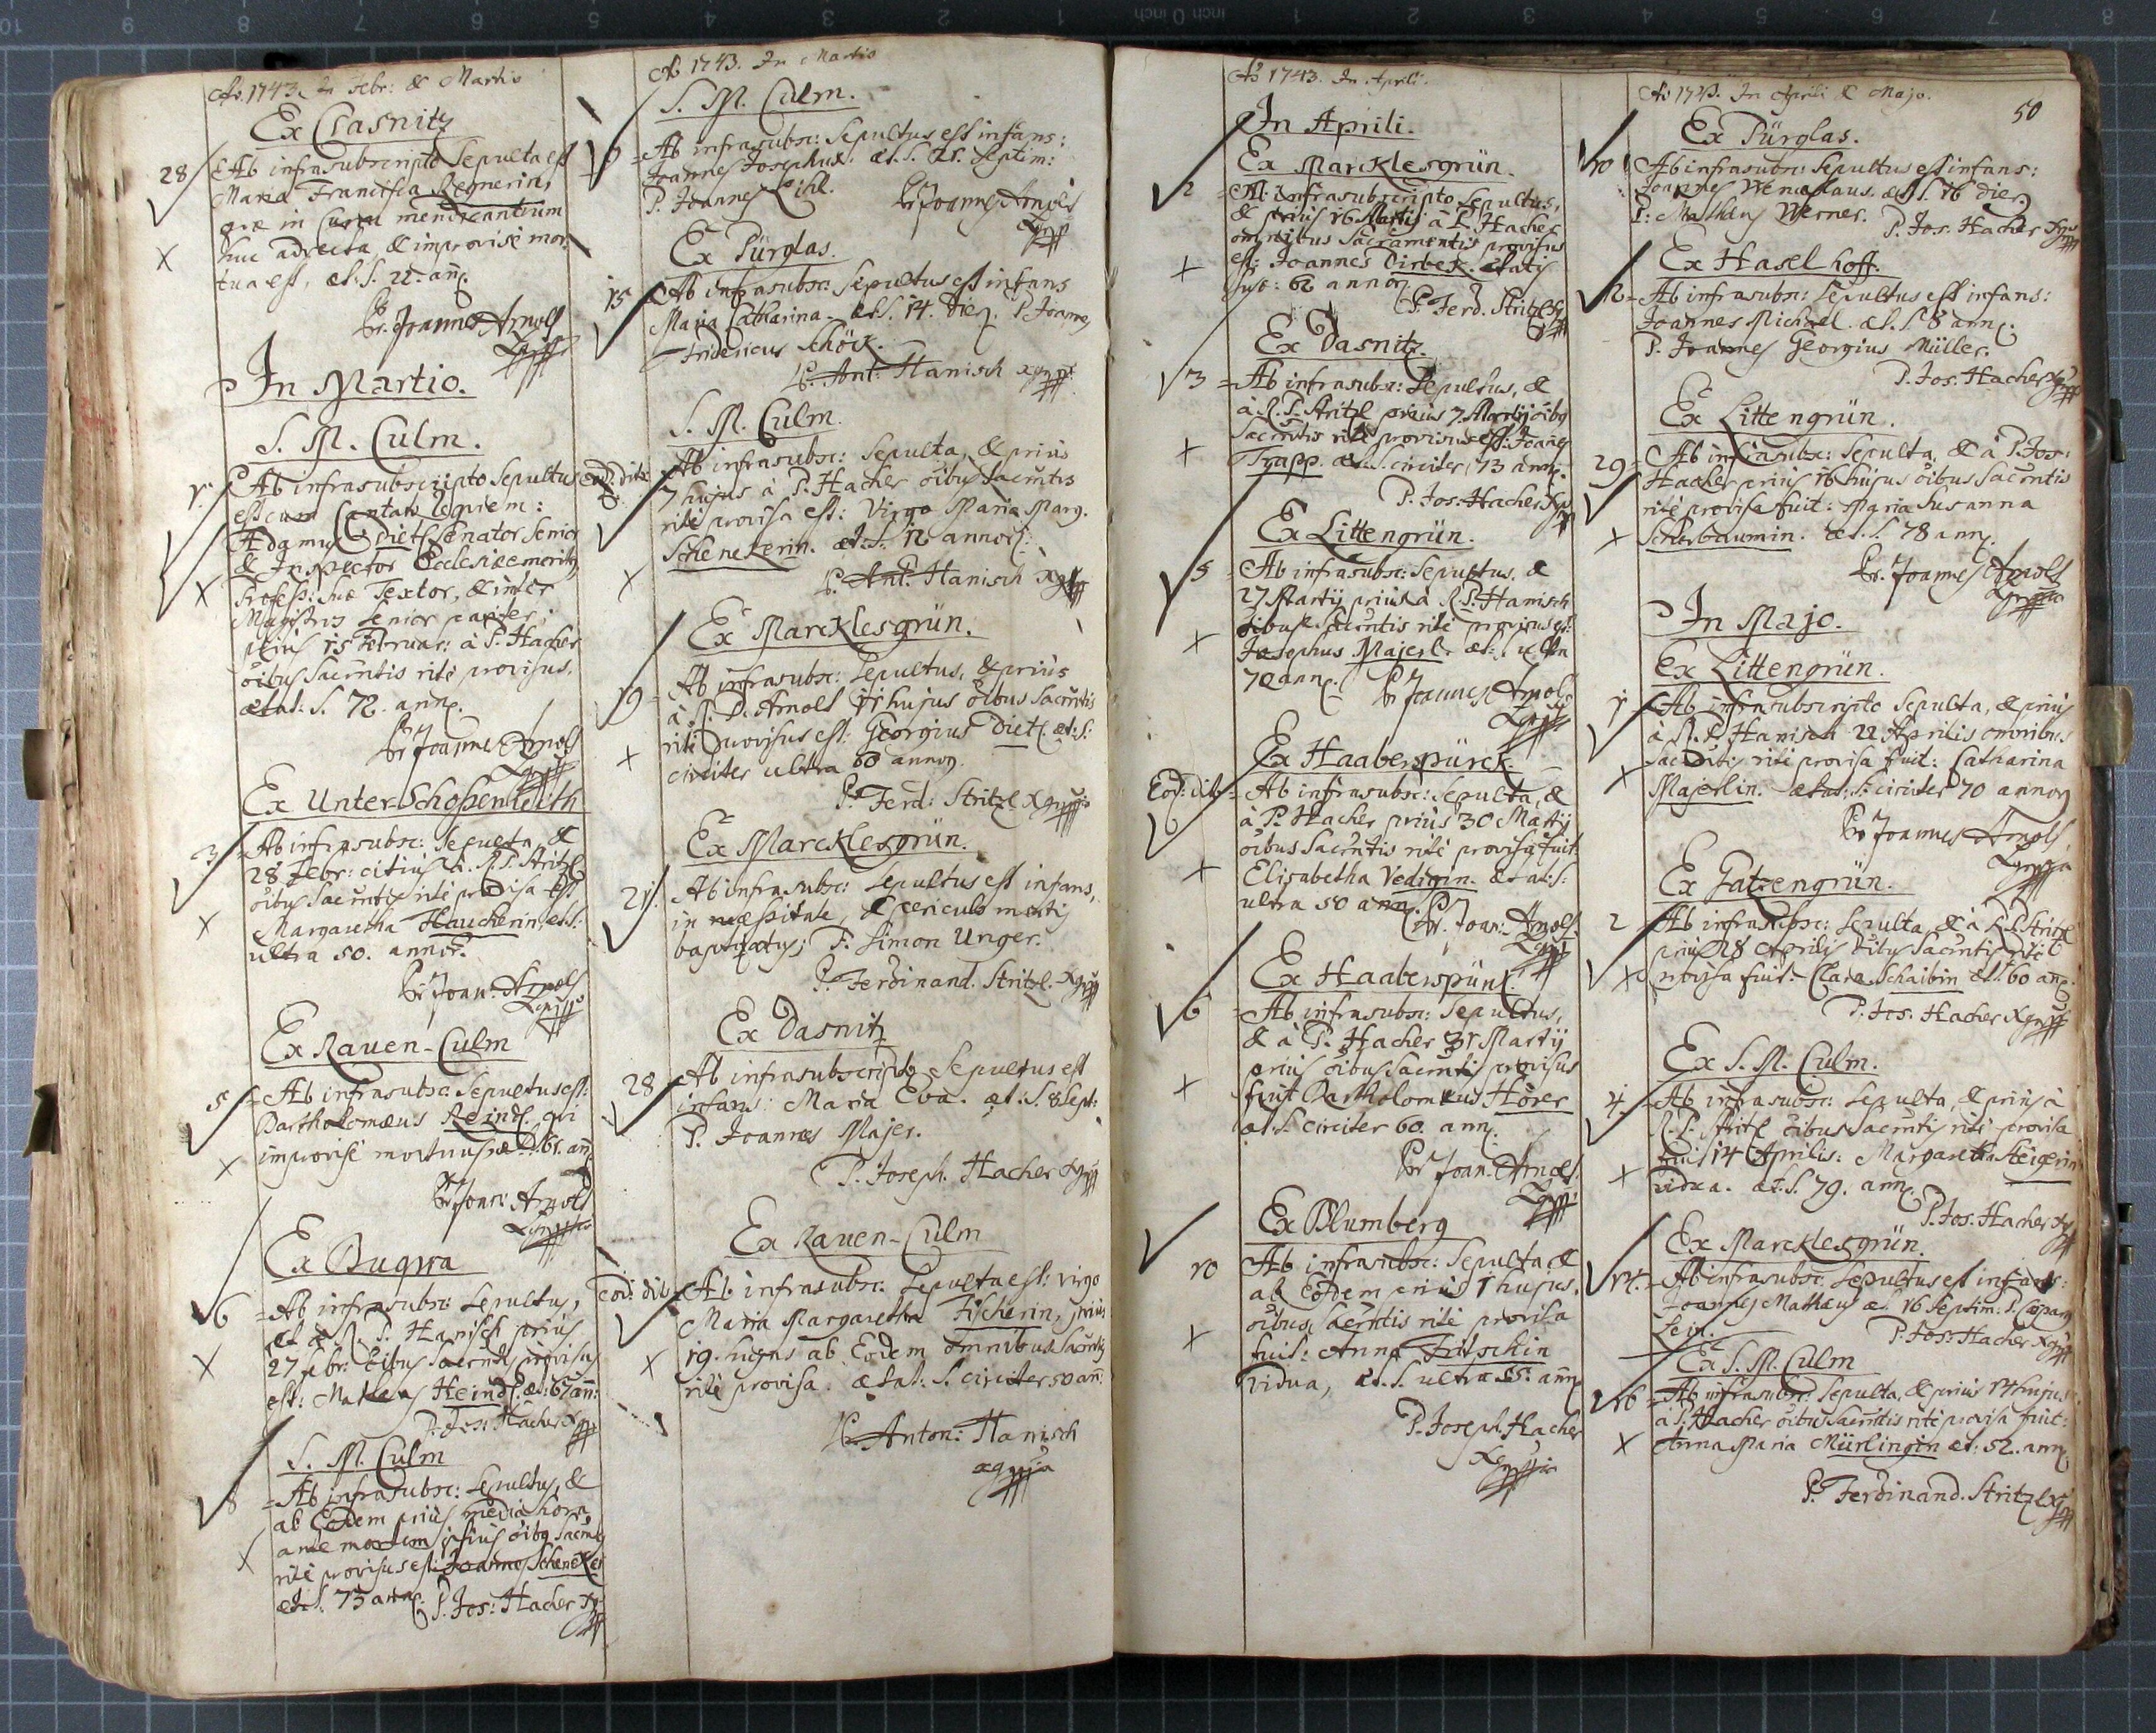 Aō. 1743. In Febr: & Martio
Ex Dasnitz
28 Ab infrasubscripto Sepulta est
Maria Francisca Regnerin,
quæ in mendicantium
huc advecta, & improvise mor-
tua est, æt. S. 22. anñ.
Pr. Joannes Arnolt
In Martio.
S. M. Culm.
1. Ab infrasubscripto Sepultus
est cum Cantato Requiem:
Adamus Dietl Senator Senior
& Inspector Ecclesiæ
Profess: suæ Textor, & inter
Magistros Senior pariter,
prius 15 Februar: à P. Hacher
oībus Sacrñtis ritè provisus,
ætat: S. 72. anñ.
Pr Joannes Arnolt
Ex Unter-Schoßenreith
3 Ab infrasubsc: Sepulta, &
28 Febr: citius à R. P. Stritzl
oībus Sacrñtis ritè provisa est
Margaretha Haucherin, æt. S.
ultra 50. annor.
Pr Joan: Arnolt
Ex Rauen-Culm
5 Ab infrasubsc: Sepultus est:
Bartholomæus Reindl. qui
improvisè mortuus æt. S. 61. anñ
Pr Joan: Arnolt
Ex Bugwa
6 Ab infrasubsc: Sepultus,
et à R. P. Hanisch prius
27 Febr: oībus Sacrñtis provisus
est: Matheus Heindl. æt: 67 anñ:
P. Jos: Hacher
S. M. Culm
8 Ab infrasubsc: Sepultus, &
ab Eodem prius media hora,
ante mortem ipsius oībq Sacrñtis
ritè provisus est: Joannes Schencker
æt. S. 73 anñ. P. Jos: Hacher
Aō 1743. In Martio
S. M. Culm.
9 Ab infrasubsc: Sepultus est infans:
Joannes Josephus. æt. S. 21. Septim:
P. Joannes Pichl. Pr Joannes Arnolt
Ex Pürglas.
15 Ab infrasubsc: Sepultus est infans
Maria Catharina. æt. S. 14. Dieq. P. Joannes
Fridericus Schöck.
P. Ant: Hanisch
S. M. Culm.
eod. dito Ab infrasubsc: Sepulta, & prius
7 hujus à P. Hacher oībus Sacrñtis
ritè provisa est: Virgo Maria Marg.
Schenckerin. æt. S. 12 annor:
P. Ant: Hanisch
Ex Marcklesgrün.
19 Ab infrasubsc: Sepultus, & prius
à R. P. Arnolt 17 hujus oībus Sacrñtis
ritè provisus est: Georgius Dietl. æt: S:
circiter ultra 60 annoq.
P. Ferd: Stritzl
Ex Marcklesgrün.
21. Ab infrasubsc: Sepultus est infans,
in necessitate, & periculo mortis
baptizatus; P. Simon Unger.
P. Ferdinand. Stritzl.
Ex Dasnitz
28 Ab infrasubscripto Sepultus est
infans: Maria Eva. æt: S. 8 Sept:
P. Joannes Majer.
P. Joseph. Hacher
Ex Rauen-Culm
Eod. dito Ab infrasubsc: Sepulta est: Virgo
Maria Margaretha Fischerin, prius
19. hujus ab Eodem omnibus Sacrñtis
ritè provisa. ætat: S. circiter 50 anñ:
P. Anton: Hanisch
Aō 1743. In Aprili.
In Aprili.
Ex Marcklesgrün.
2 Ab infrasubscripto Sepultus,
& prius 16 Martij à P. Hacher
omnibus Sacramentis provisus
est: Joannes Dirbek. Ætatis
suæ: 62 annoq
P. Ferd. Stritzl
Ex Dasnitz.
3 Ab infrasubsc: Sepultus, &
à R. P. Stritzl prius 7 Martij oībq
Sacrñtis ritè provisus est: Joannes
Trapp. æt. S. circiter 73 anñ.
P. Jos: Hacher
Ex Littengrün.
5 Ab infrasubsc: Sepultus, &
27 Martij prius à R. P. Hanisch
oībus Sacrñtis ritè provisus est:
Josephus Majerl. æt: S. ultra
70 anñ. Pr Joannes Arnolt
Ex Haaberspürck.
Eod: dito Ab infrasubsc: Sepulta, &
à P. Hacher prius 30 Martij
oībus Sacrñtis ritè provisa fuit
Elisabetha Vedigin. Ætat: S:
ultra 50 anñ.
Pr. Joan: Arnolt.
Ex Haaberspürck.
6 Ab infrasubsc: Sepultus,
& à P. Hacher 31 Martij
prius oībus Sacrñtis provisus
fuit Bartholomæus Hörer
æt. S. circiter 60. anñ.
Pr Joan. Arnolt.
Ex Blumberg
10 Ab infrasubsc: Sepulta, &
ab Eodem prius 1 hujus.
oībus Sacrñtis ritè provisa
fuit: Anna Fritschin
Vidua, æt. S. ultra 55. anñ
P. Joseph. Hacher
Aō 1743. In Aprili & Majo.
50
Ex Pürglas.
10 Ab infrasubsc: Sepultus est infans:
Joannes Wenceslaus. æt. S. 16 dier.
P: Matheus Werner. P. Jos. Hacher
Ex Haselhoff.
12 Ab infrasubsc: Sepultus est infans:
Joannes Michael. æt. S. 8 anñ.
P. Joannes Georgius Müller.
P. Jos. Hacher
Ex Littengrün.
29 Ab infrasubsc: Sepulta, & à P. Jos:
Hacher prius 16 hujus oībus Sacrñtis
ritè provisa fuit: Maria Susanna
Scherbaumin. æt. S. 78 anñ.
Pr. Joannes Arnolt
In Majo.
Ex Littengrün.
1 Ab infrasubscripto Sepulta, & prius
à R. P. Hanisch 22 Aprilis omnibus
Sacrñtis ritè provisa fuit: Catharina
Majerlin. ætat: S: circiter 70 annoq
Pr Joannes Arnolt
Ex Gatzengrün.
2 Ab infrasubsc: Sepulta, & à R. P. Stritzl
prius 28 Aprilis oībus Sacrñtis ritè
provisa fuit: Clara Schaibin æt. S. 60 anñ.
P. Jos. Hacher
Ex S. M. Culm.
4. Ab infrasubsc: Sepulta, & prius à
R. P. Stritzl oībus Sacrñtis ritè provisa
fuit 14 Aprilis: Margaretha Steigerin
vidua. æt. S. 79. anñ.
P. Jos. Hacher
Ex Marcklesgrün.
14. Ab infrasubsc: Sepultus est infans:
Joannes Matheus æt. 16 Septim: P. Caspar
Lein. P. Jos: Hacher
Ex S. M. Culm
16 Ab infrasubsc: Sepulta, & prius 14 hujus
à P. Hacher oībus Sacrñtis ritè provisa fuit:
Anna Maria Mürlingin æt: 52. anñ
P. Ferdinand. Stritzl